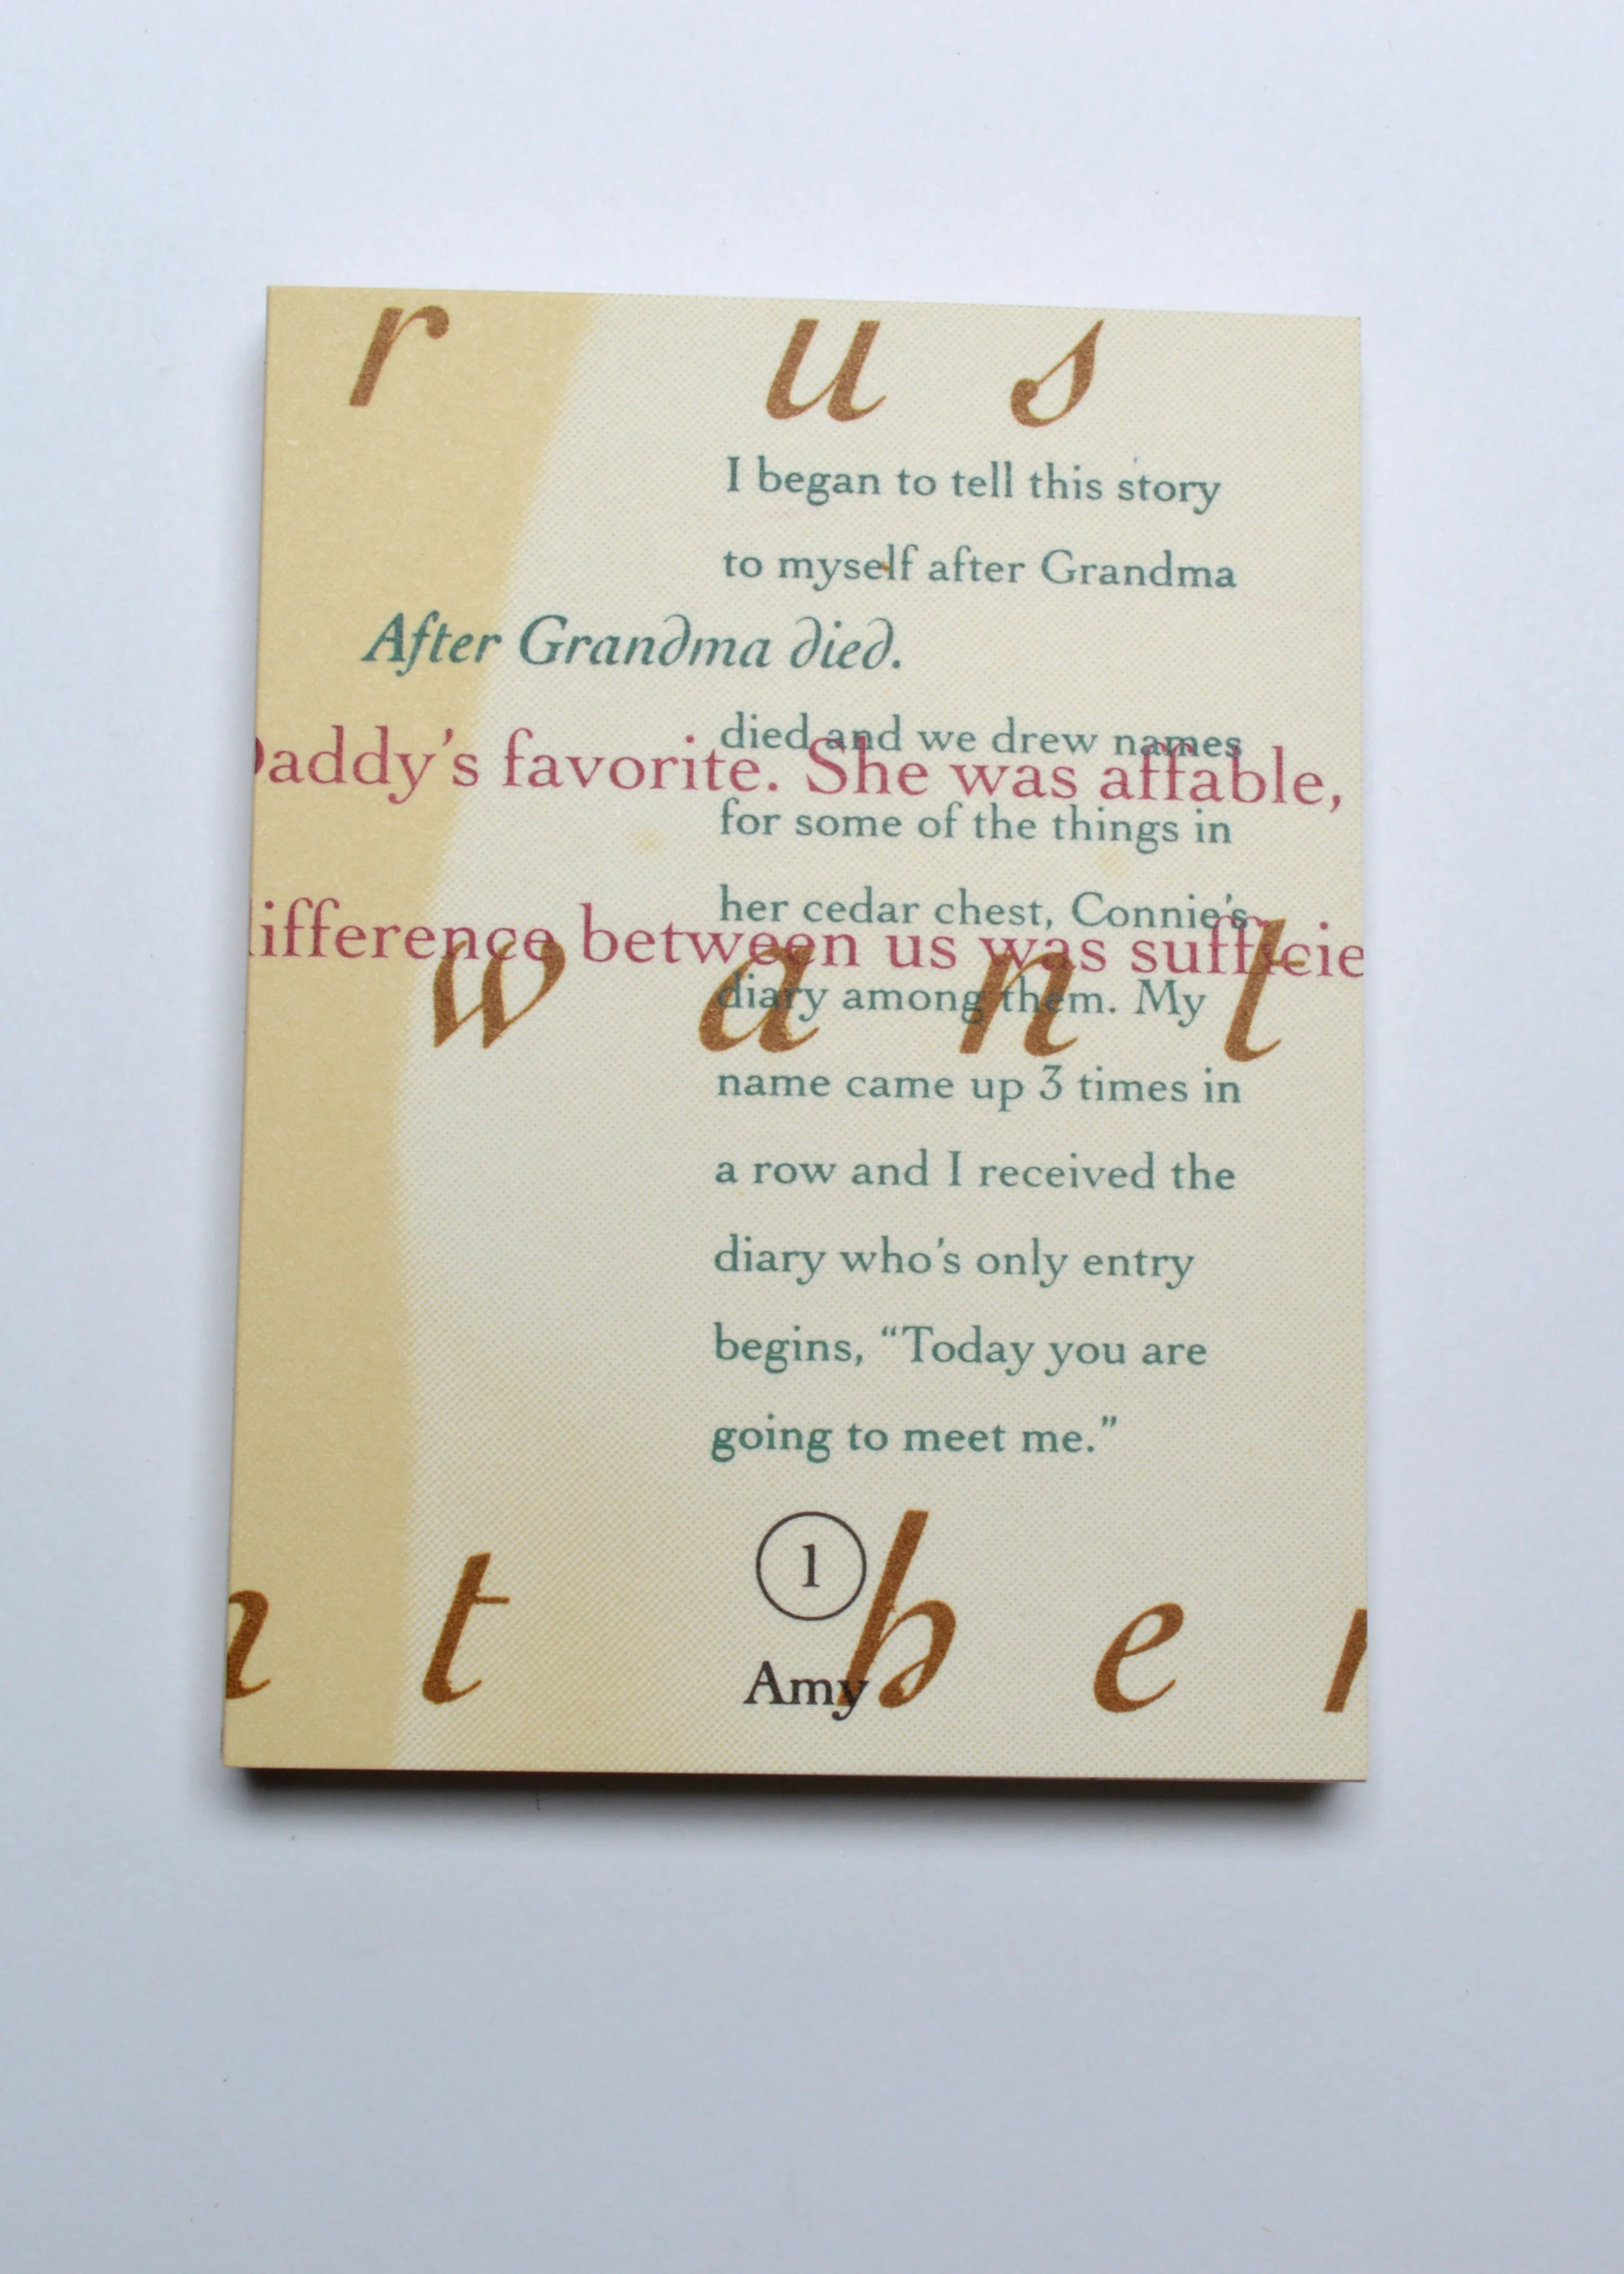 r u s
I began to tell this story
to myself after Grandma
After Grandma died.
died and we drew names
Daddy's favorite. She was affable,
for some of the things in
her cedar chest, Connie's
difference between us was sufficie
w a n t
diary among them. My
name came up 3 times in
a row and I received the
diary who's only entry
begins, “Today you are
going to meet me.”
1
t h e
Amy